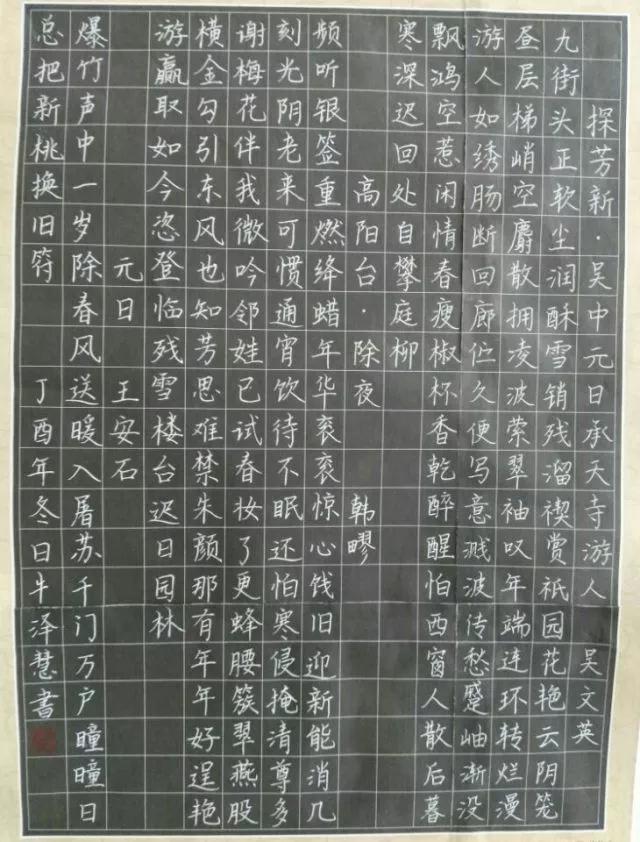 探芳新·吴中元日承天寺游人 吴文英
九街头正软尘润酥雪销残溜禊赏祇园花艳云阴笼
昼层梯峭空麝散拥凌波萦翠袖叹年端连环转烂漫
游人如绣肠断回廊伫久便写意溅波传愁蹙岫渐没
飘鸿空惹闲情春瘦椒杯香乾醉醒怕西窗人散后暮
寒深迟回处自攀庭柳
高阳台·除夜 韩疁
频听银签重燃绛蜡年华衮衮惊心饯旧迎新能消几
刻光阴老来可惯通宵饮待不眠还怕寒侵掩清尊多
谢梅花伴我微吟邻娃已试春妆了更蜂腰簇翠燕股
横金勾引东风也知芳思难禁朱颜那有年年好逞艳
游赢取如今恣登临残雪楼台迟日园林
元日 王安石
爆竹声中一岁除春风送暖入屠苏千门万户曈曈日
总把新桃换旧符 丁酉年冬日牛泽慧書